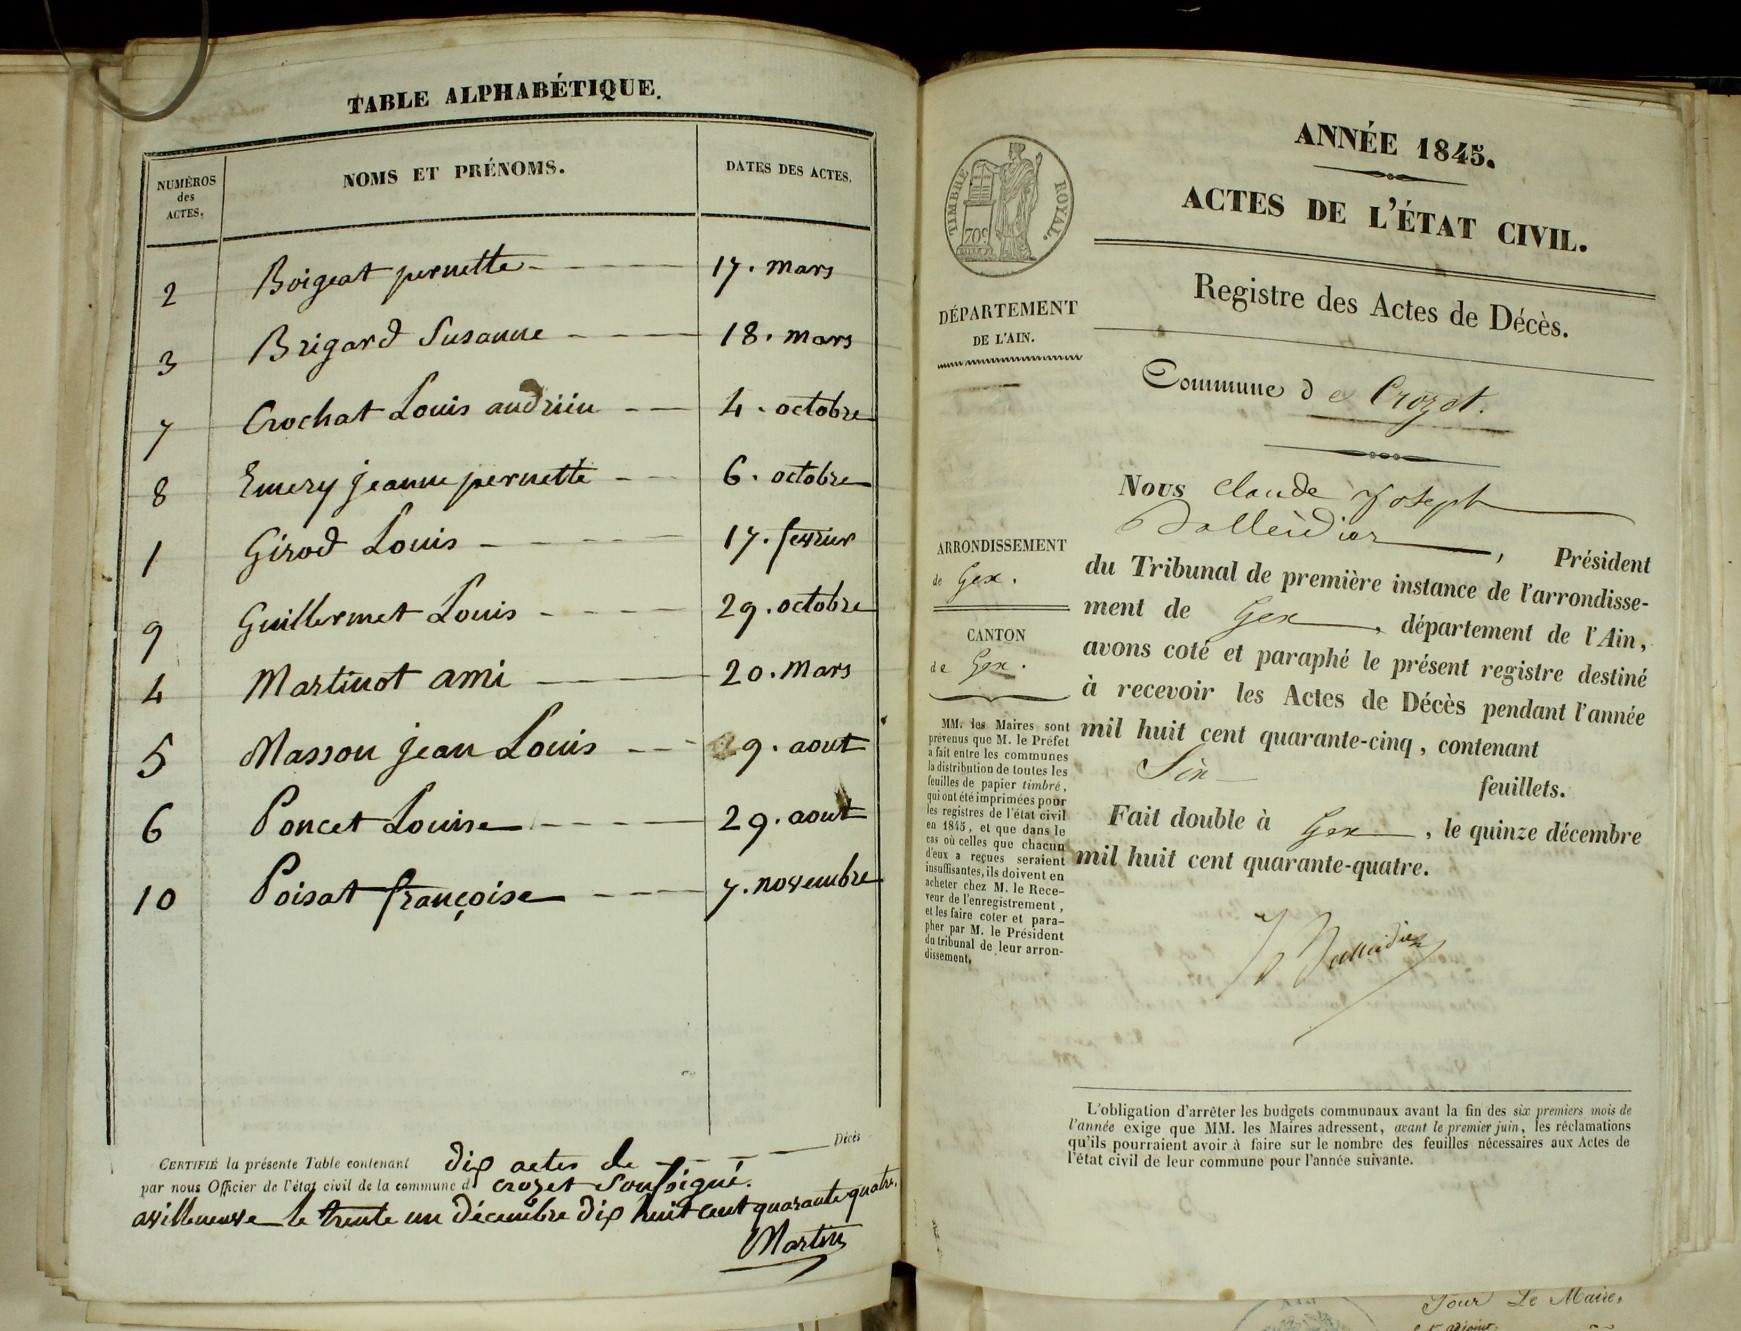 TABLE ALPHABÉTIQUE.
NUMÉROS des ACTES. NOMS ET PRÉNOMS. DATES DES ACTES.
2 Boigeat pernette 17. mars
3 Brigard Susanne 18. mars
7 Crochat Louis andriin 4. octobre
8 Emery jeanne pernette 6. octobre
1 Girod Louis 17. fevrier
9 Guillermet Louis 29. octobre
4 Martinot ami 20. mars
5 Masson jean Louis 9. aout
6 Poncet Louise 29. aout
10 Poisat françoise 7. novembre
CERTIFIÉ la présente Table contenant dix actes de Décès
par nous Officier de l'état civil de la commune d crozet Soussigné.
avilleneuve le trente un décembre dix huit cent quarante quatre.
Martin
ANNÉE 1845.
ACTES DE L'ÉTAT CIVIL.
TIMBRE ROYAL.
Registre des Actes de Décès.
DÉPARTEMENT
DE L'AIN.
Commune de Crozet.
Nous claude joseph
, Président
du Tribunal de première instance de l'arrondisse-
ment de Gex, département de l'Ain,
avons coté et paraphé le présent registre destiné
à recevoir les Actes de Décès pendant l'année
mil huit cent quarante-cinq, contenant
Six feuillets.
Fait double à Gex, le quinze décembre
mil huit cent quarante-quatre.
ARRONDISSEMENT
de Gex.
CANTON
de Gex.
MM. les Maires sont
prévenus que M. le Préfet
a fait entre les communes
la distribution de toutes les
feuilles de papier timbré,
qui ont été imprimées pour
les registres de l'état civil
en 1845, et que dans le
cas où celles que chacun
d'eux a reçues seraient
insuffisantes, ils doivent en
acheter chez M. le Rece-
veur de l'enregistrement,
et les faire coter et para-
pher par M. le Président
du tribunal de leur arron-
dissement.
L'obligation d'arrêter les budgets communaux avant la fin des six premiers mois de
l'année exige que MM. les Maires adressent, avant le premier juin, les réclamations
qu'ils pourraient avoir à faire sur le nombre des feuilles nécessaires aux Actes de
l'état civil de leur commune pour l'année suivante.
Pour Le Maire,